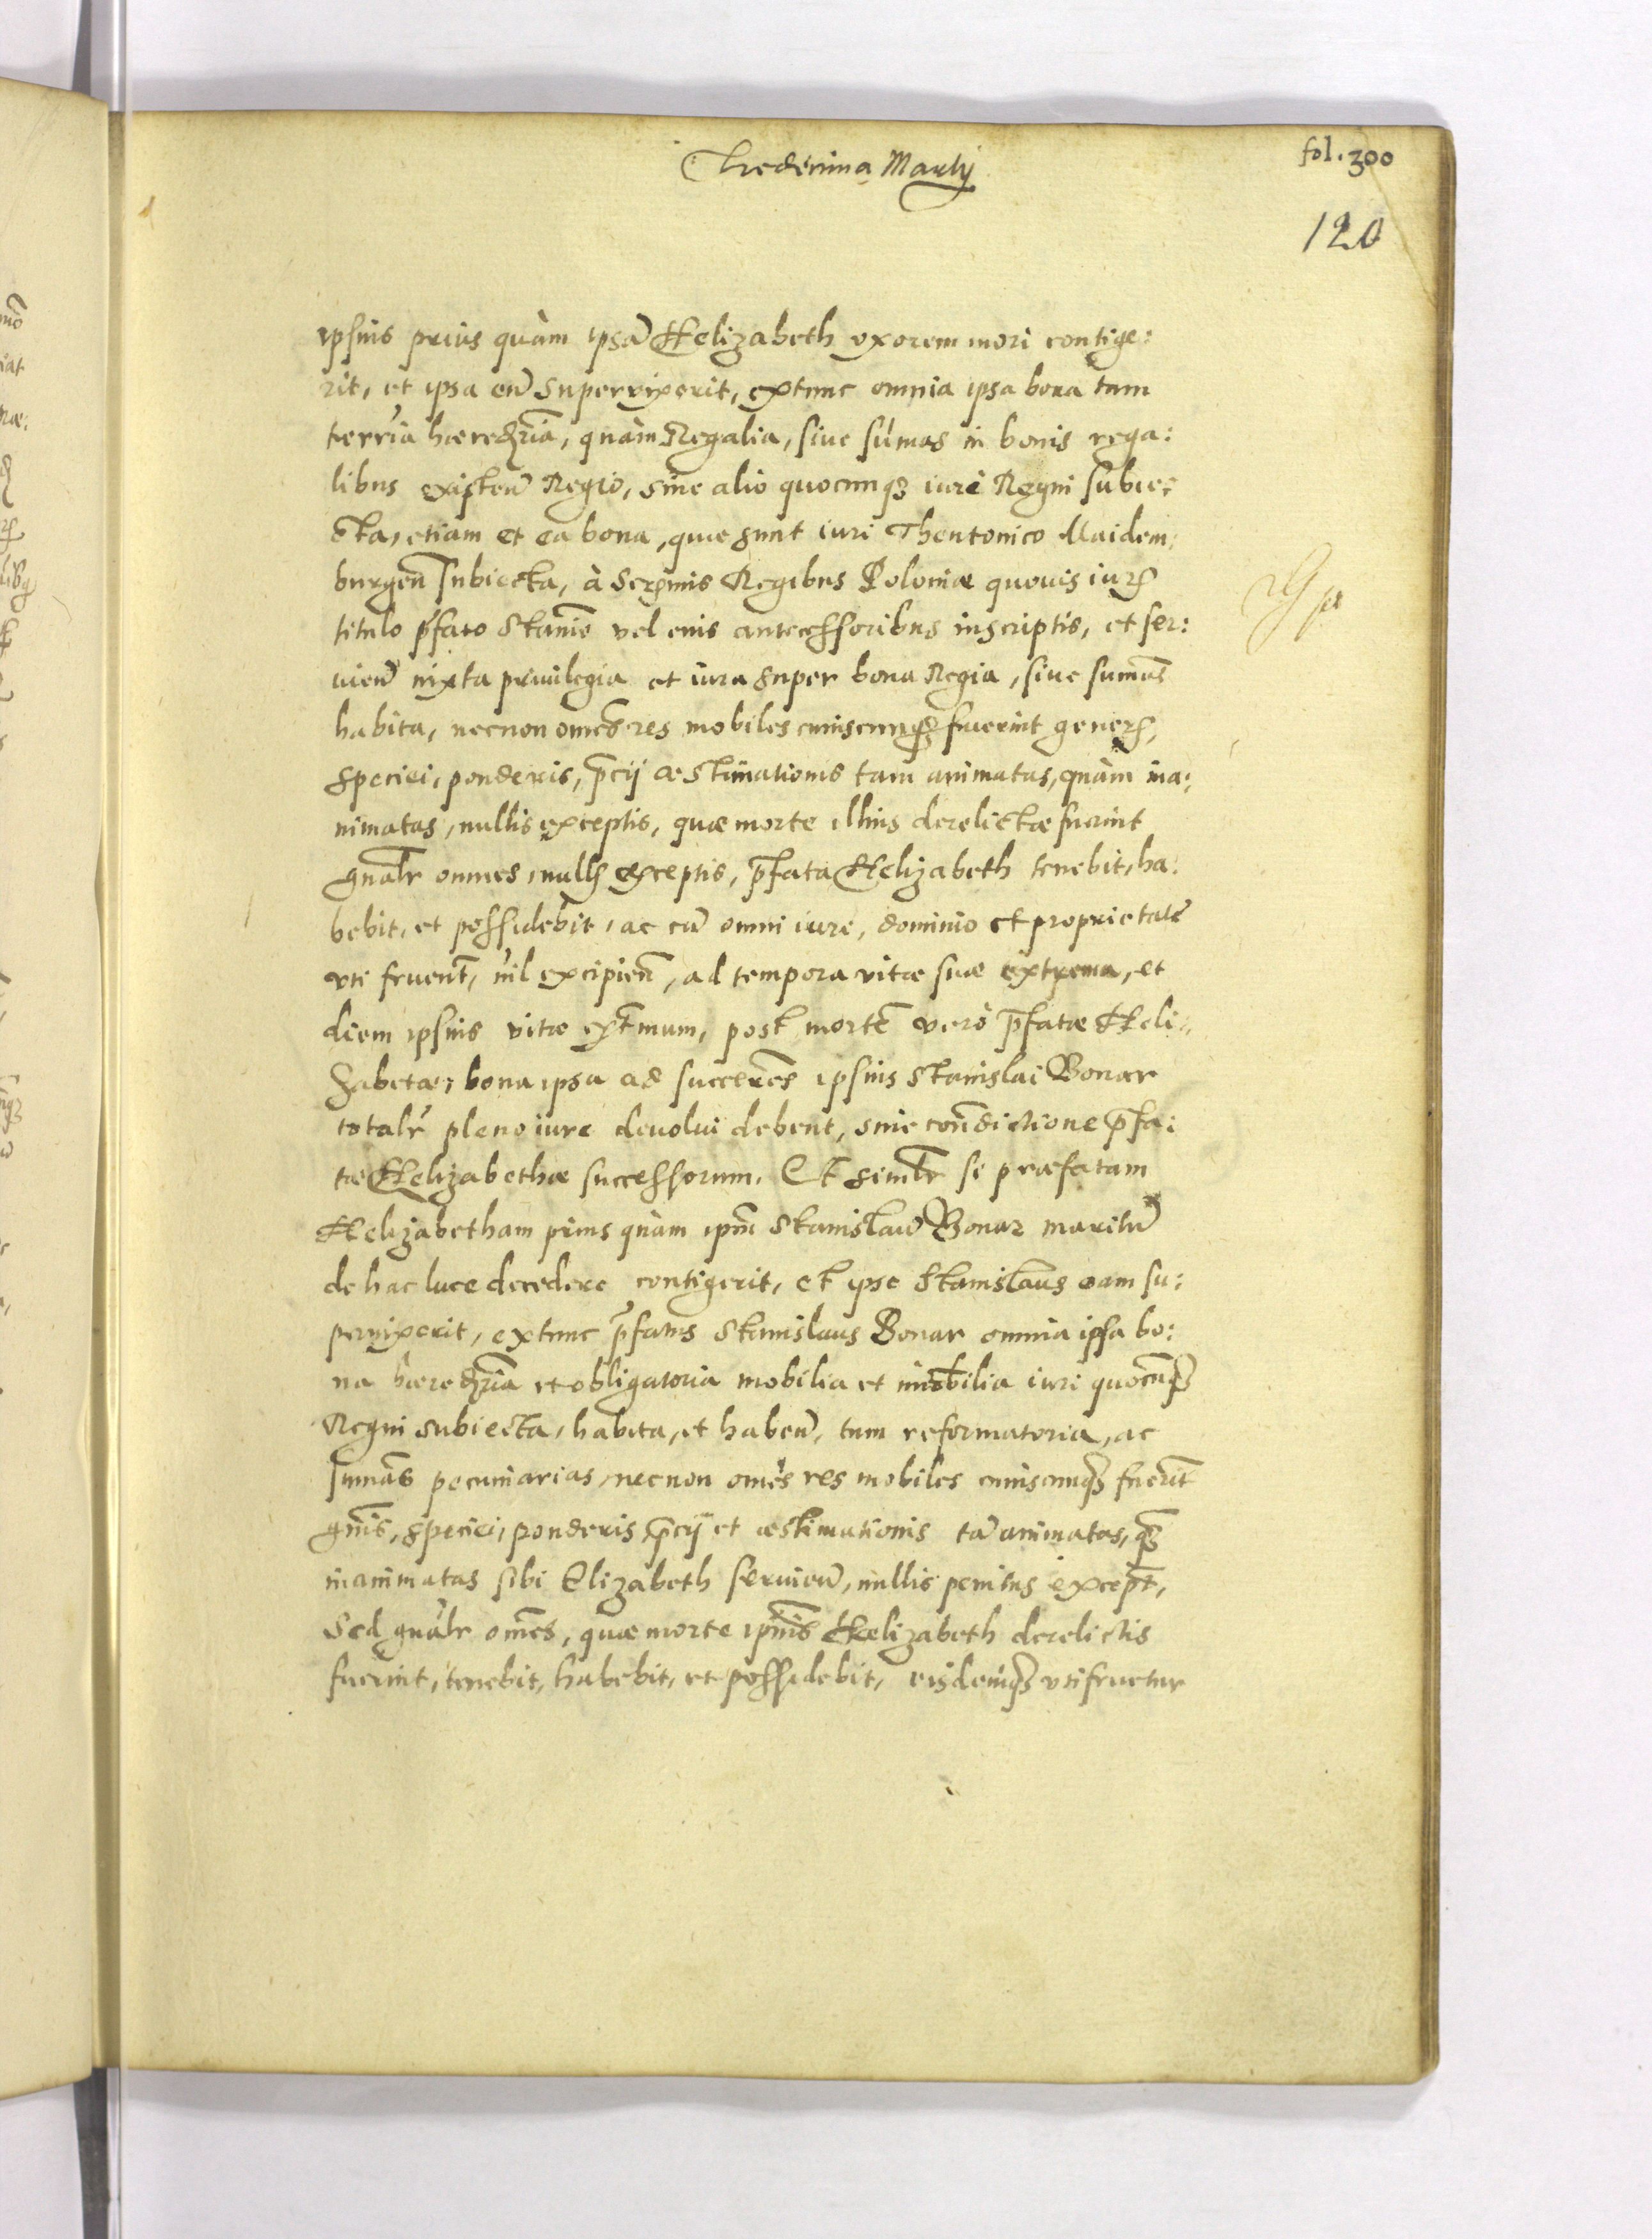 Tredecima Martij
fol. 300
120
ipsius prius quàm ipsā Helizabeth vxorem mori contige:
rit, et ipsa eū superuixerit, extunc omnia ipsa bona tam
terrīa hæredria, quàm Regalia, siue sūmas in bonis rega:
libus existeñ Regio, siue alio quocunq3 iuri Regni subie:
cta, etiam et ea bona, quæ sunt iuri Theutonico Maidem:
burgeñ subiecta, à Sermis Regibus Poloniæ quouis iur
titulo p̄fato Stanio vel euis antecessoribus inscriptis, et ser:
uieñ iuxta priuilegia et iura super bona Regia, siue sumās
habita, necnon omēs res mobiles cuiuscunq3 fuerint gener
speciei, ponderis, p̄cij æstimationis tam animatas, quàm ina:
nimatas, nullis exceptis, quæ morte illius derelictæ fuerint
gnalr omnes, null exceptis, p̄fata Helizabeth tenebit, ha:
bebit, et possidebit, ac cū omni iure, dominio et proprietatē
vti fruent, nil excipieñ, ad tempora vitæ suæ extrema, et
diem ipsius vitæ extmum, post mortē verò p̄fatæ Heli:
zabetæ, bona ipsa ad succēres ipsius Stanislai Bonar
totalr pleno iure deuolui debent, sine condictione p̄fa:
tæ Helizabethæ successorum. Et similr si præfatam
Helizabetham prius quàm ipm̄ Stanislaū Bonar maritū
de hac luce decedere contigerit, et ipse Stanislaus eam su:
peruixerit, extunc p̄fatus Stanislaus Bonar omnia ipsa bo:
na hæredria et obligatoria mobilia et imobilia iuri quocūq3
Regni subiecta, habita, et habeñ, tum reformatoria, ac
sumās pecuniarias, necnon omēs res mobiles cuiuscunq3 fuerīt
gnis, speciei, ponderis p̄cij et æstimationis tā animatas, q3
inanimatas sibi Elizabeth seruieñ, nullis penitus except,
Sed gnalr omēs, quæ morte ipīus Helizabeth derelictis
fuerint, tenebit, habebit, et possidebit, eisdemq3 vtifruetur